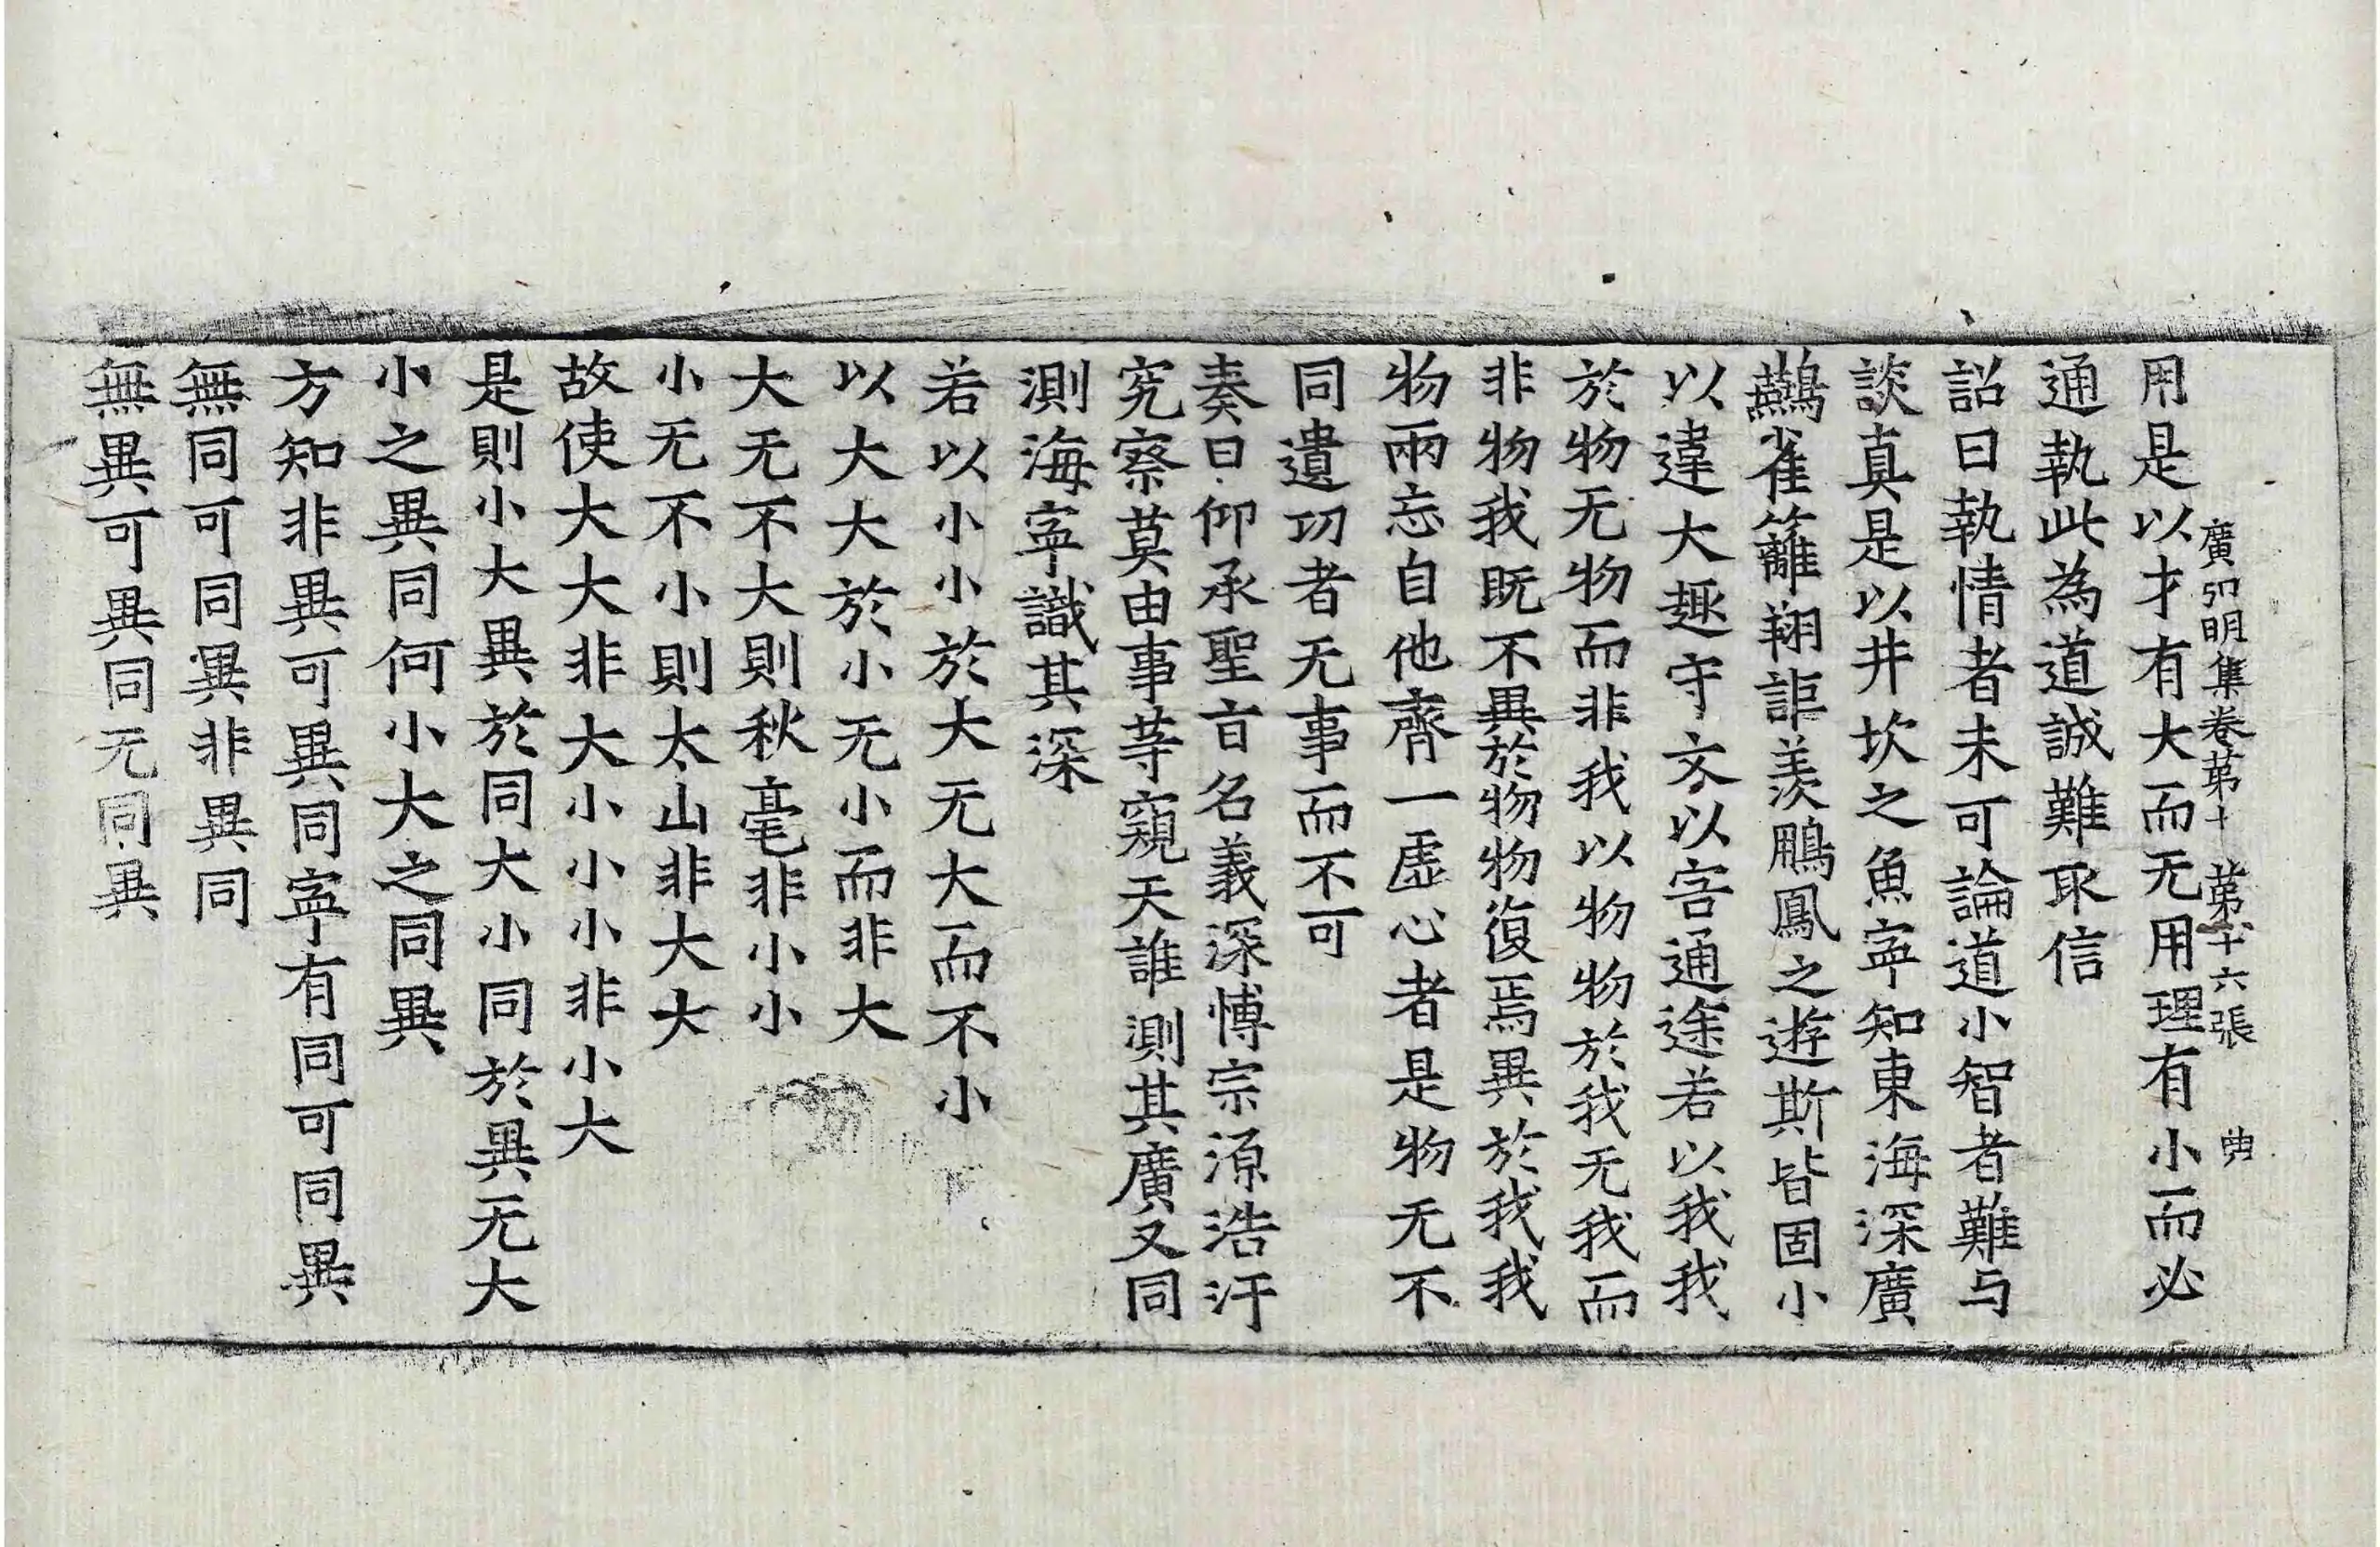 廣弘明集卷第十 第十六張 典
用是以才有大而无用理有小而必
通執此為道誠難取信
詔曰執情者未可論道小智者難与
談真是以井坎之魚寜知東海深廣
鷰雀籬翔詎羨鵬鳳之遊斯皆固小
以違大趣守文以害通途若以我我
於物无物而非我以物物於我无我而
非物我既不異於物物復焉異於我我
物兩忘自他齊一虛心者是物无不
同遺功者无事而不可
奏曰仰承聖旨名義深博宗源浩汗
究察莫由事等窺天誰測其廣又同
測海寜識其深
若以小小於大无大而不小
以大大於小无小而非大
大无不大則秋毫非小小
小无不小則太山非大大
故使大大非大小小小非小大
是則小大異於同大小同於異无大
小之異同何小大之同異
方知非異可異同寜有同可同異
無同可同異非異同
無異可異同无同異